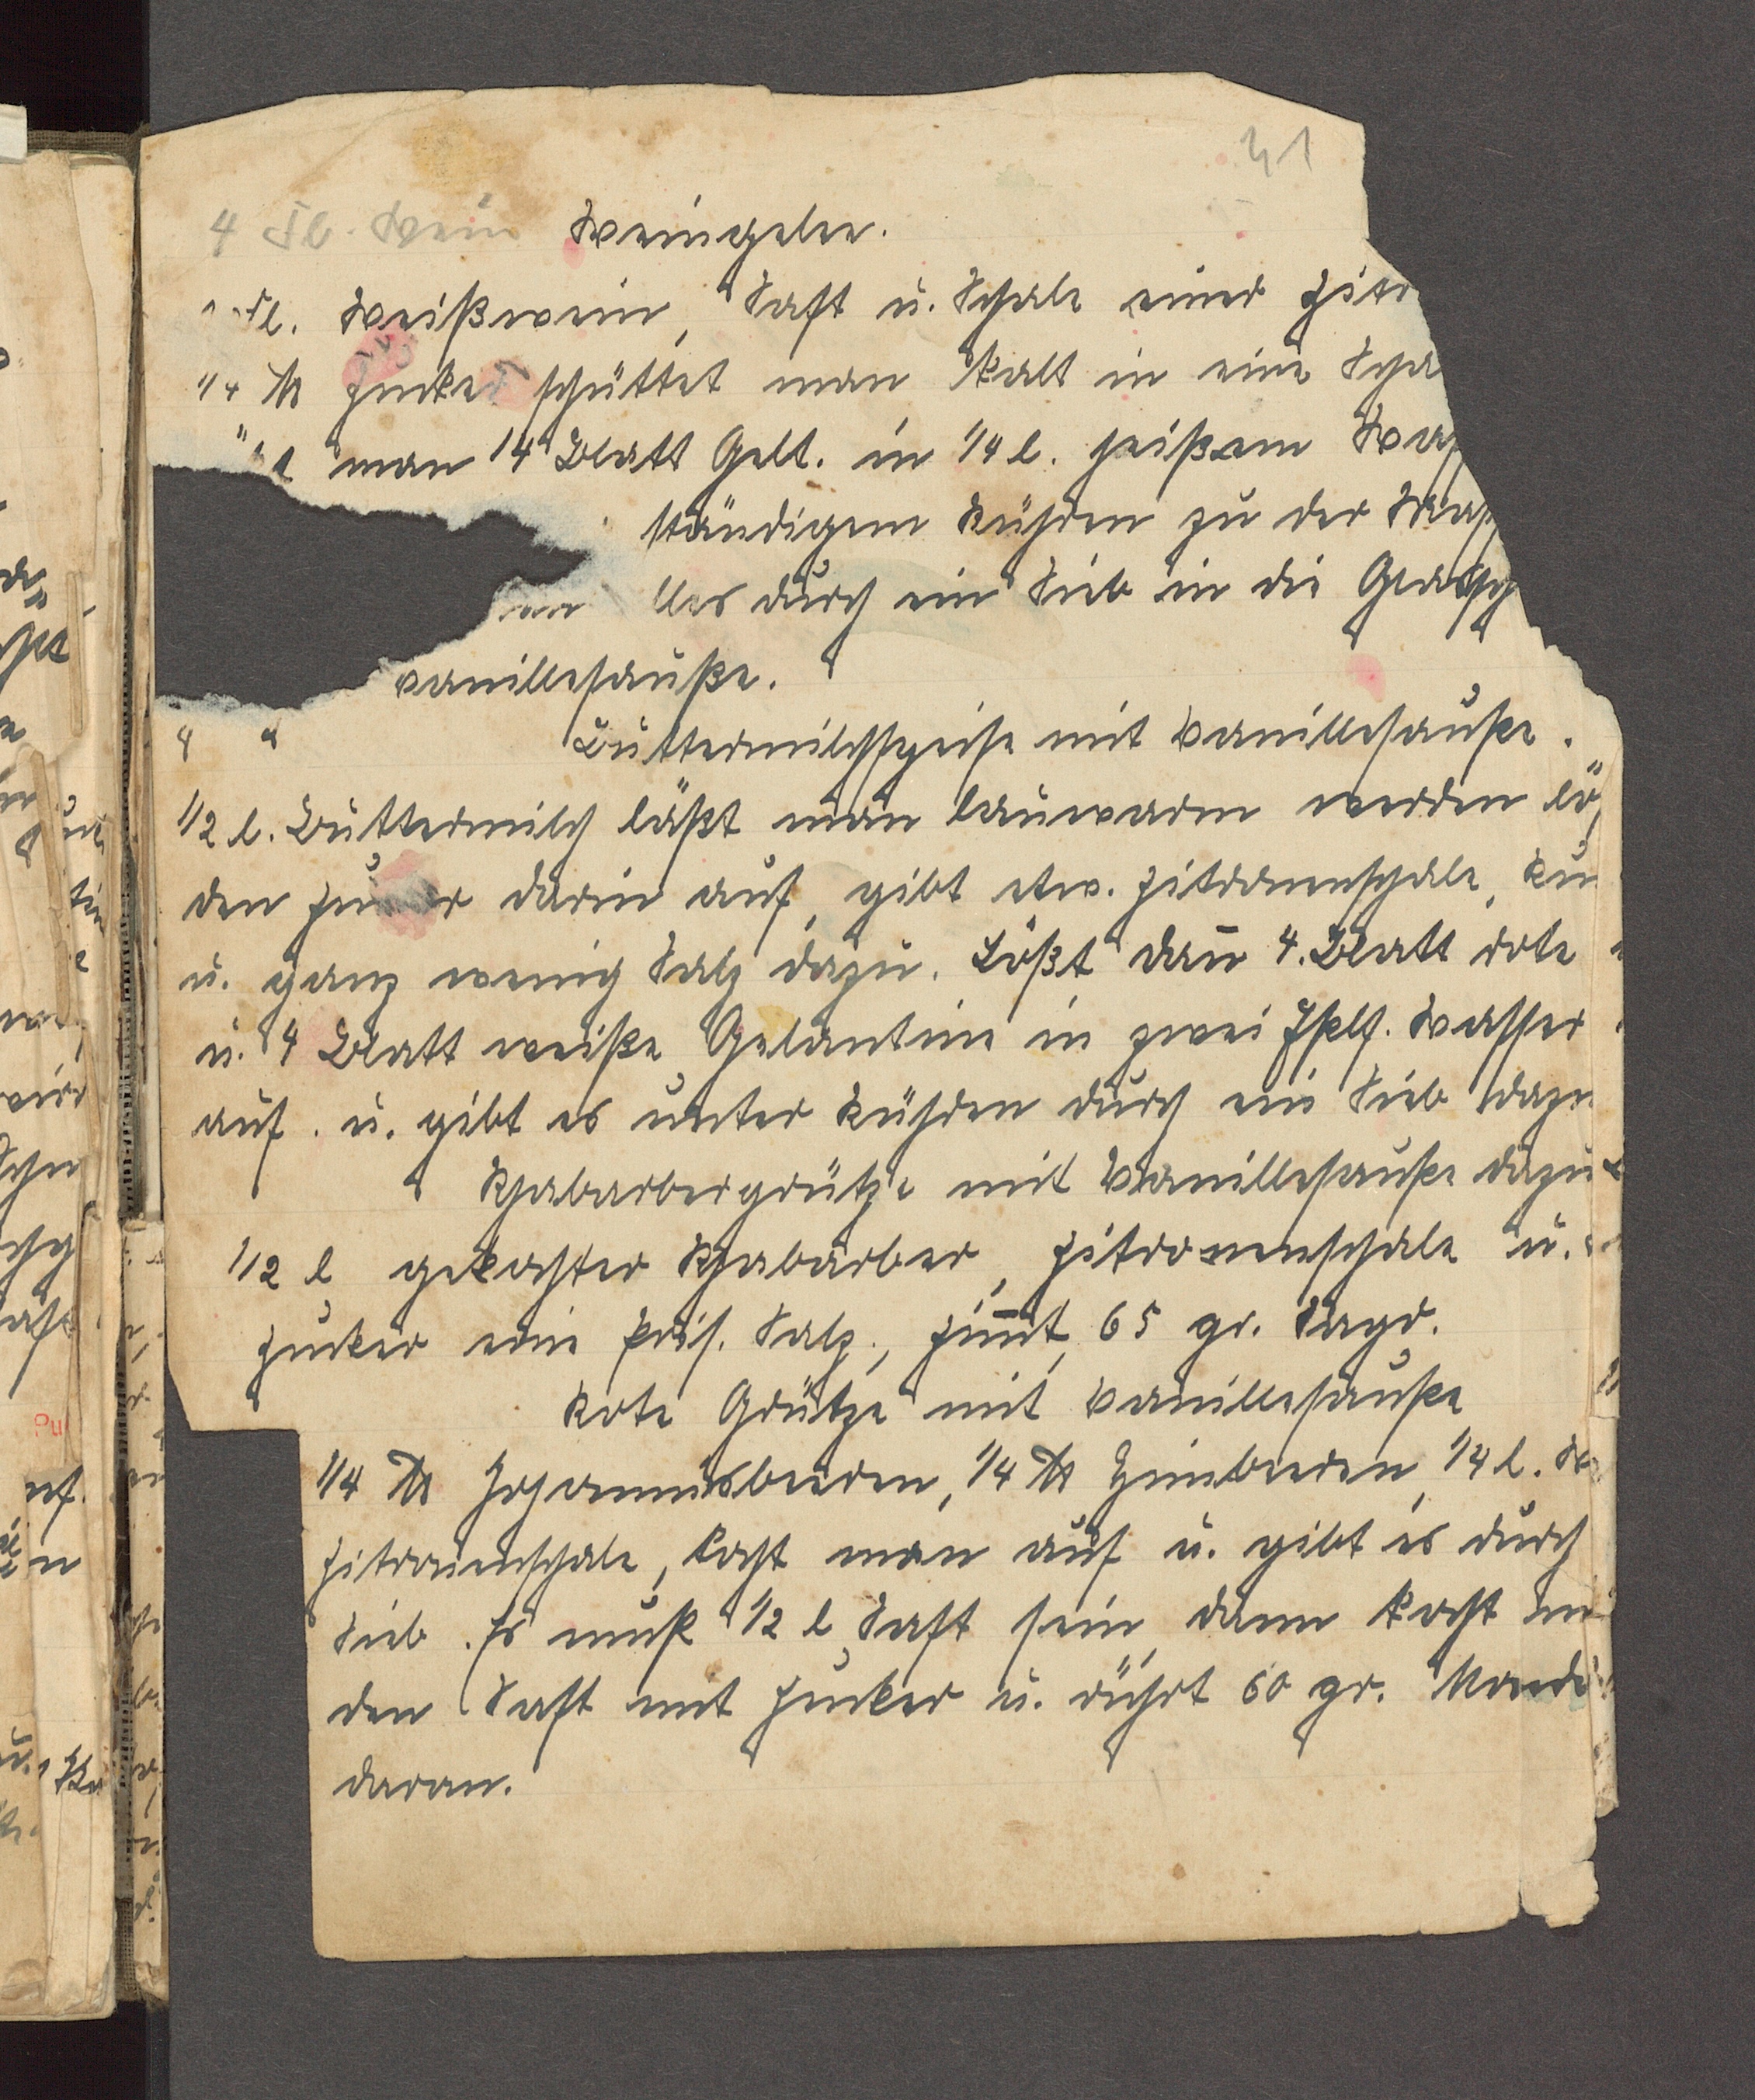 41
4 Fl. Wein Weingelee.
Fl. Weißwein, Saft u. Schale einer Zitr
1/4 ℔ Zucker schüttet man kalt in eine Scha
man 14 Blatt Gelt. in 1/4 l. heißem Was
ständigem Rühren zu der Mas
lles durch ein Sieb in die Glassch
Vanillesauße.
Buttermilchspeise mit Vanillesauße.
1/2 l. Buttermilch läßt man lauwarm werden lö
den Zucker darin auf, gibt etw. Zitronenschale, Ru
u. ganz wenig Salz dazu. Lößt dan̄ 4. Blatt rote
u. 4 Blatt weiße Gelantine in zwei Eßlf. Wasser
auf. u. gibt es unter Rühren durch ein Sieb dazu
Rhabarbergrütze mit Vanillesauße dazu
1/2 l gekochter Rhabarber, Zitronenschale u.
Zucker eine Pris. Salz, Zim̄t, 65 gr. Sago.
Rote Grütze mit Vanillesauße
1/4 ℔ Johannisbeeren, 1/4 ℔ Himbeeren, 1/4 l. W
Zitronenschale, kocht man auf u. gibt es durch
Sieb. Es muß 1/2 l Saft sein, dann kocht
den Saft mit Zucker u. rührt 60 gr. Monda
daran.